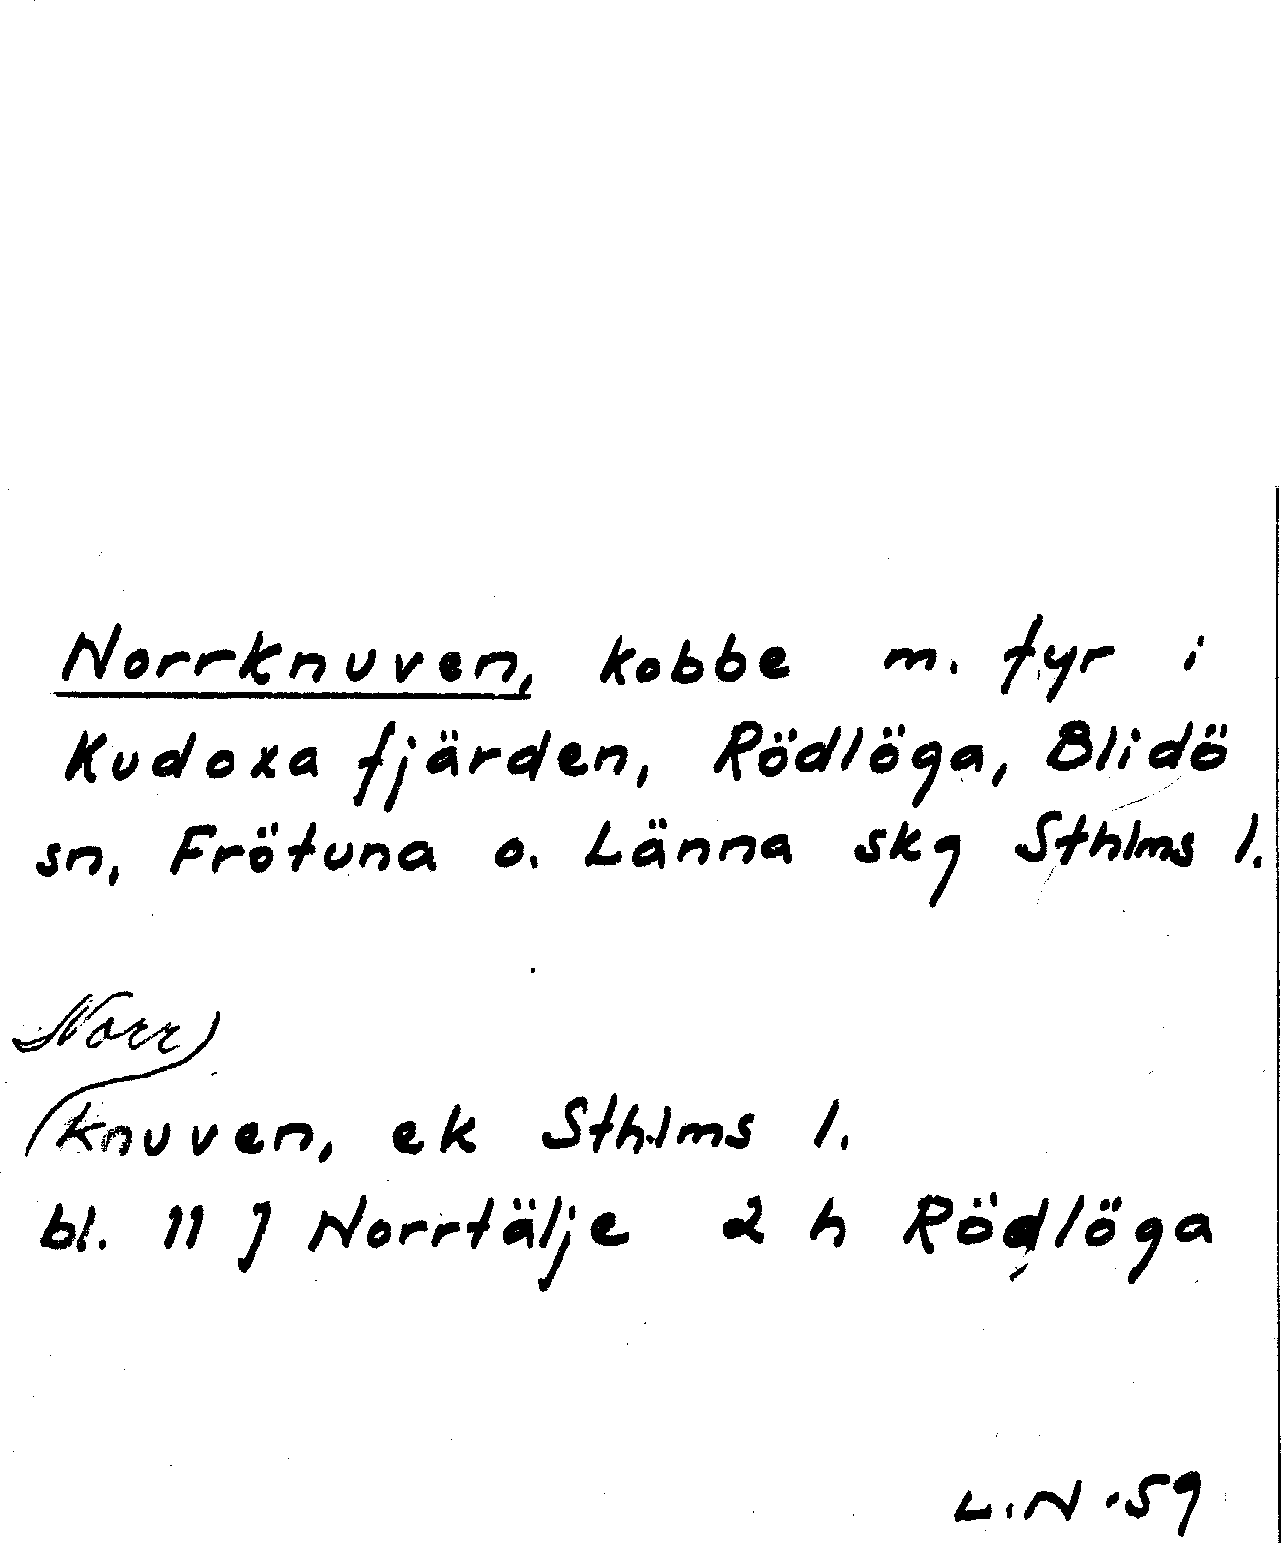 Norrknuven, kobbe m. fyr i
Kudoxa fjärden, Rödlöga, Blidö
sn, Frötuna o. Länna skg Sthlms l.
Norr
knuven, ek Sthlms l.
bl. 11 J Norrtälje 2 h Rödlöga
L.N. 59